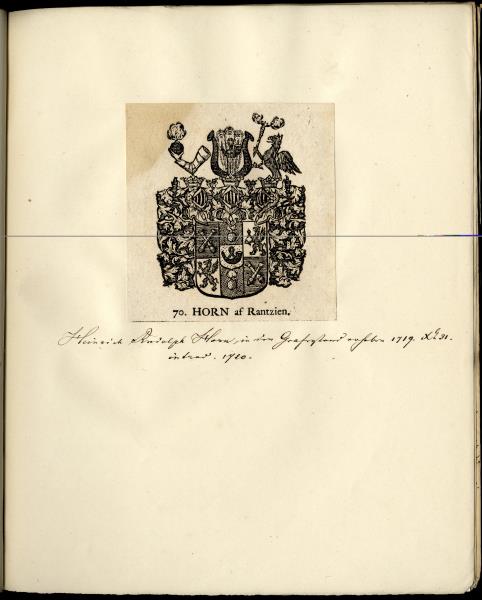 70. HORN af Rantzien.
Heinrich Rudolph Horn, in den Grafenstand erhoben 1719.
introd. 1720.